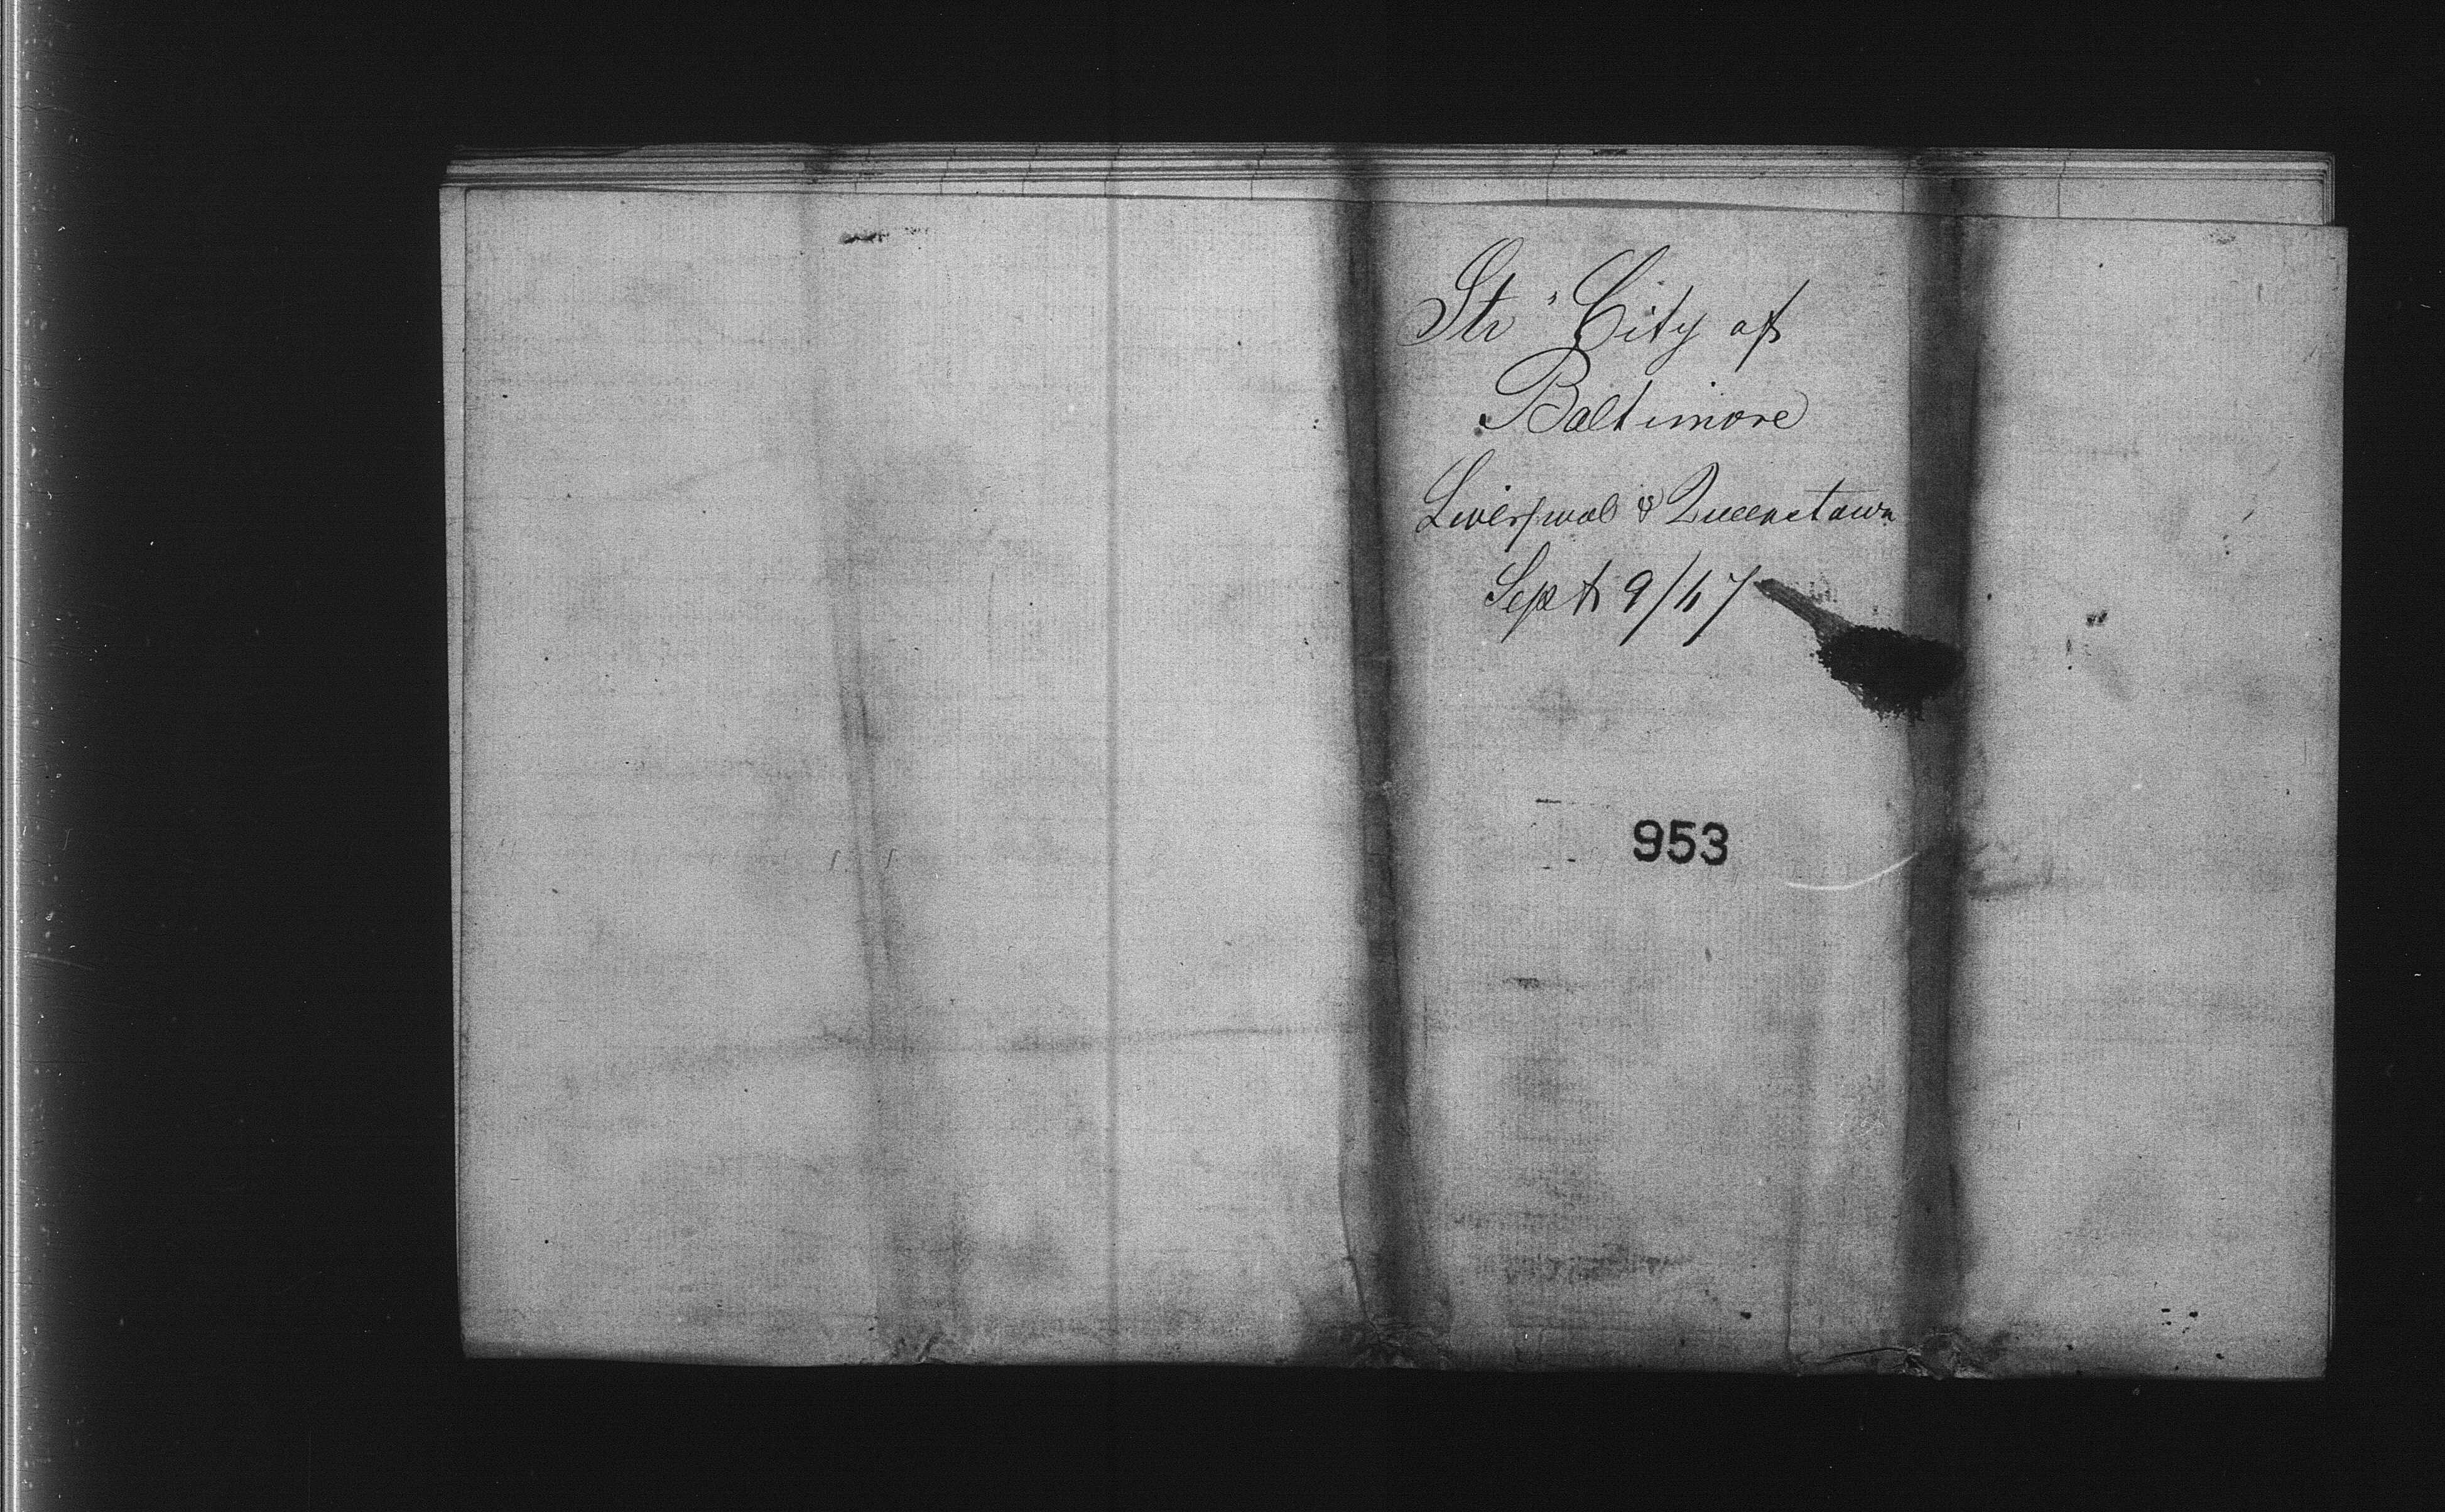 Str "City of
Baltimore
Liverpool & Queenstown
Sept 9/67
953